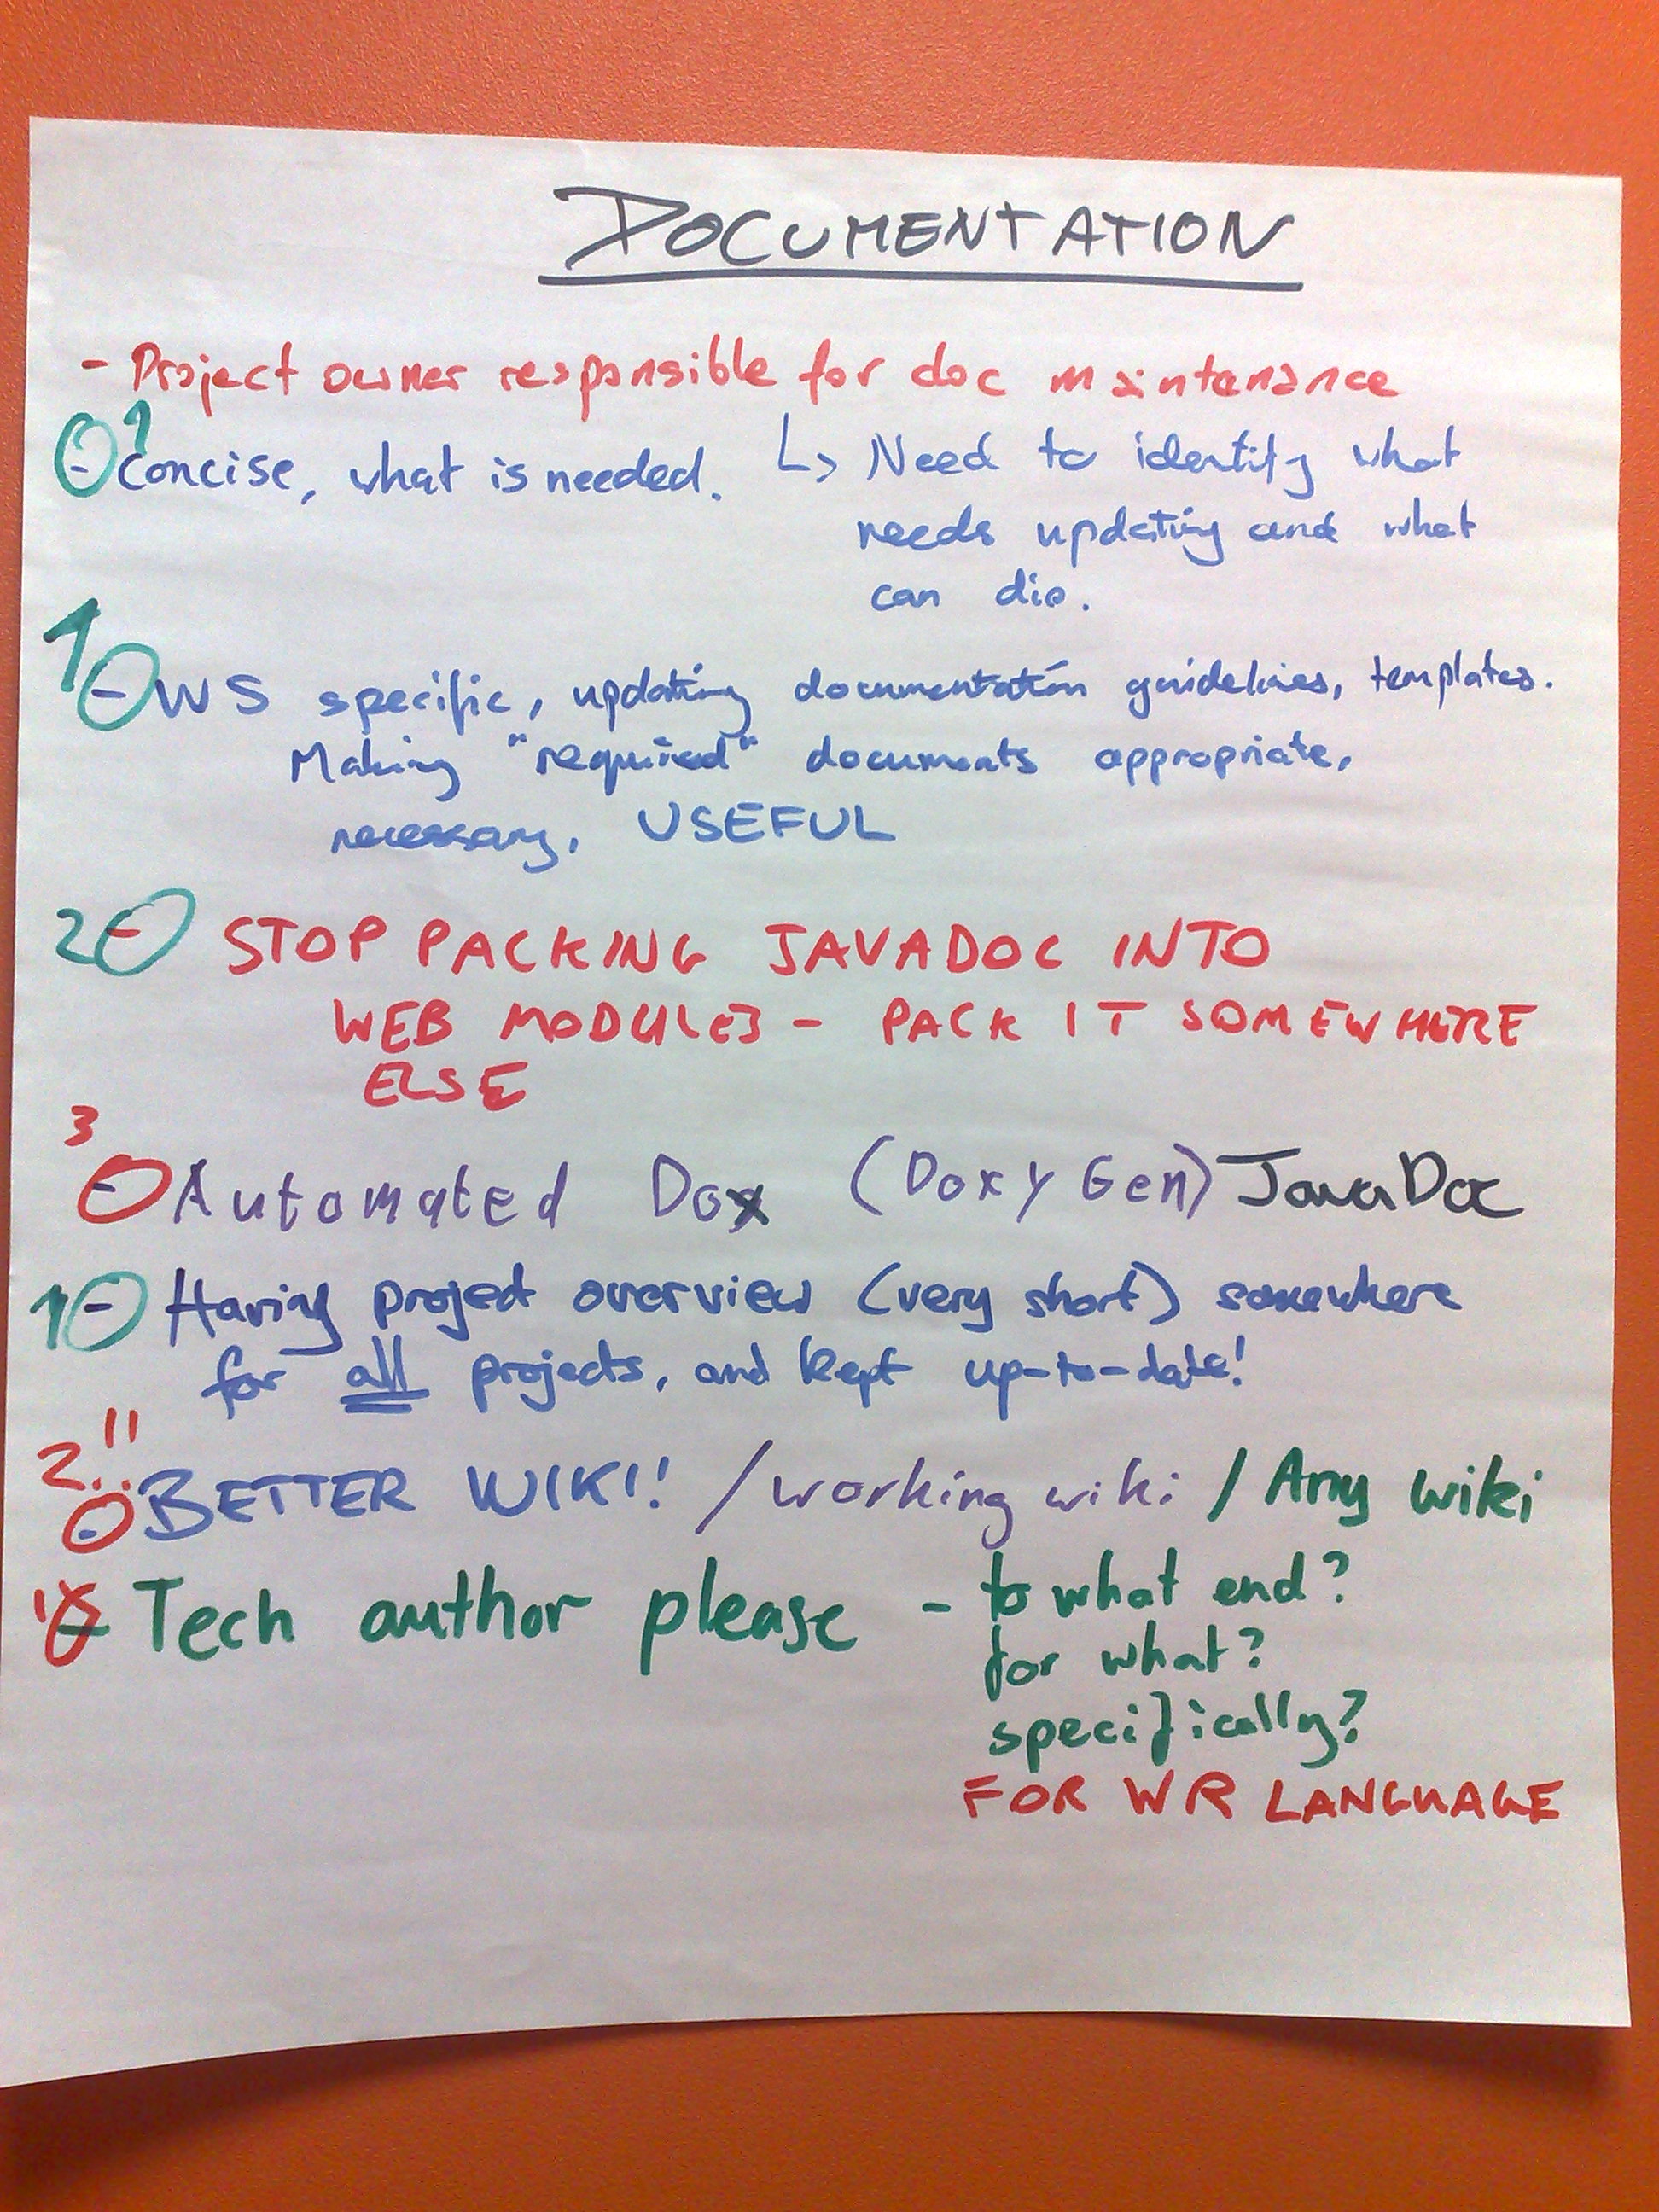 DOCUMENTATION
- Project owner responsible for doc maintenance
1 - Concise, what is needed. ↳ Need to identify what
needs updating and what
can die.
1 - WS specific, updating documentation guidelines, templates.
Making "required" documents appropriate,
necessary, USEFUL
2 - STOP PACKING JAVADOC INTO
WEB MODULES - PACK IT SOMEWHERE
ELSE
3
- Automated Dox (DoxyGen) JavaDoc
1 - Having project overview (very short) somewhere
for all projects, and kept up-to-date!
2 !!
- BETTER WIKI! / working wiki / Any wiki
1 - Tech author please - to what end?
for what?
specifically?
FOR WR LANGUAGE